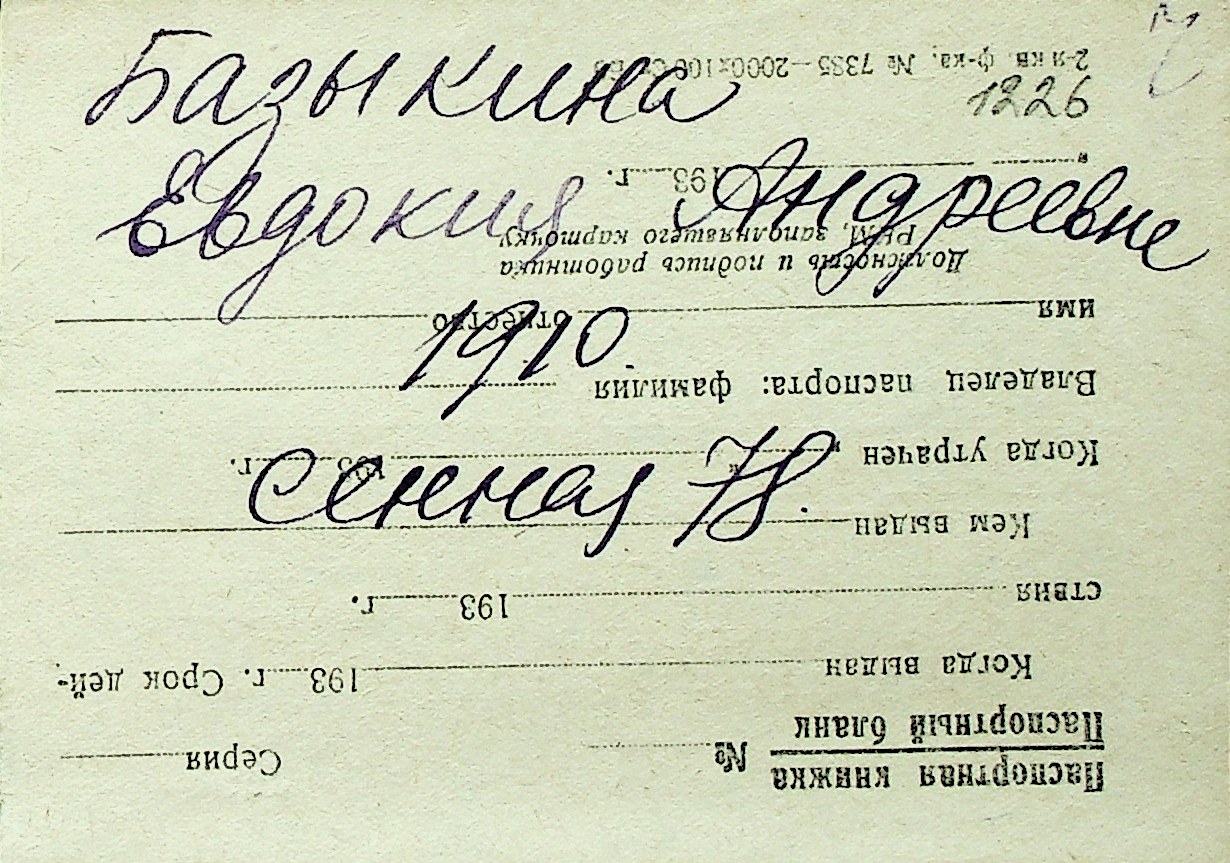 Базыкина
1226
Евдокия Андреевне
1910
Сенная 78.
Паспортная книжка
Паспортный бланк
№ Серия
Когда выдан 193 г. Срок дей-
ствия 193 г.
Кем выдан
Когда утрачен „ “ 193 г.
Владелец паспорта: фамилия
имя отчество
Должность и подпись работника
РКМ, заполнявшего карточку
193 г.
2-я кв ф-ка, № 7385—2000х100